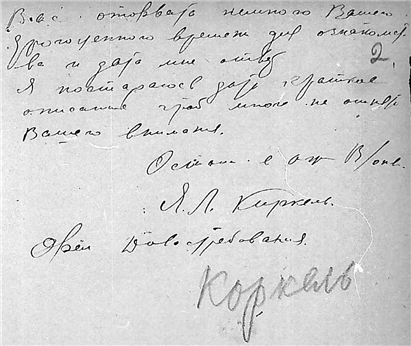 Вас оторвать немного Вашего
драгоценного времени для ознакомл
ва и дать мне ответ
2.
Я постараюсь дать краткое
описание чтоб много не отнять
Вашего внимания.
Остаюсь с
Я. Л. Киркель.
Довостребования.
Коркель